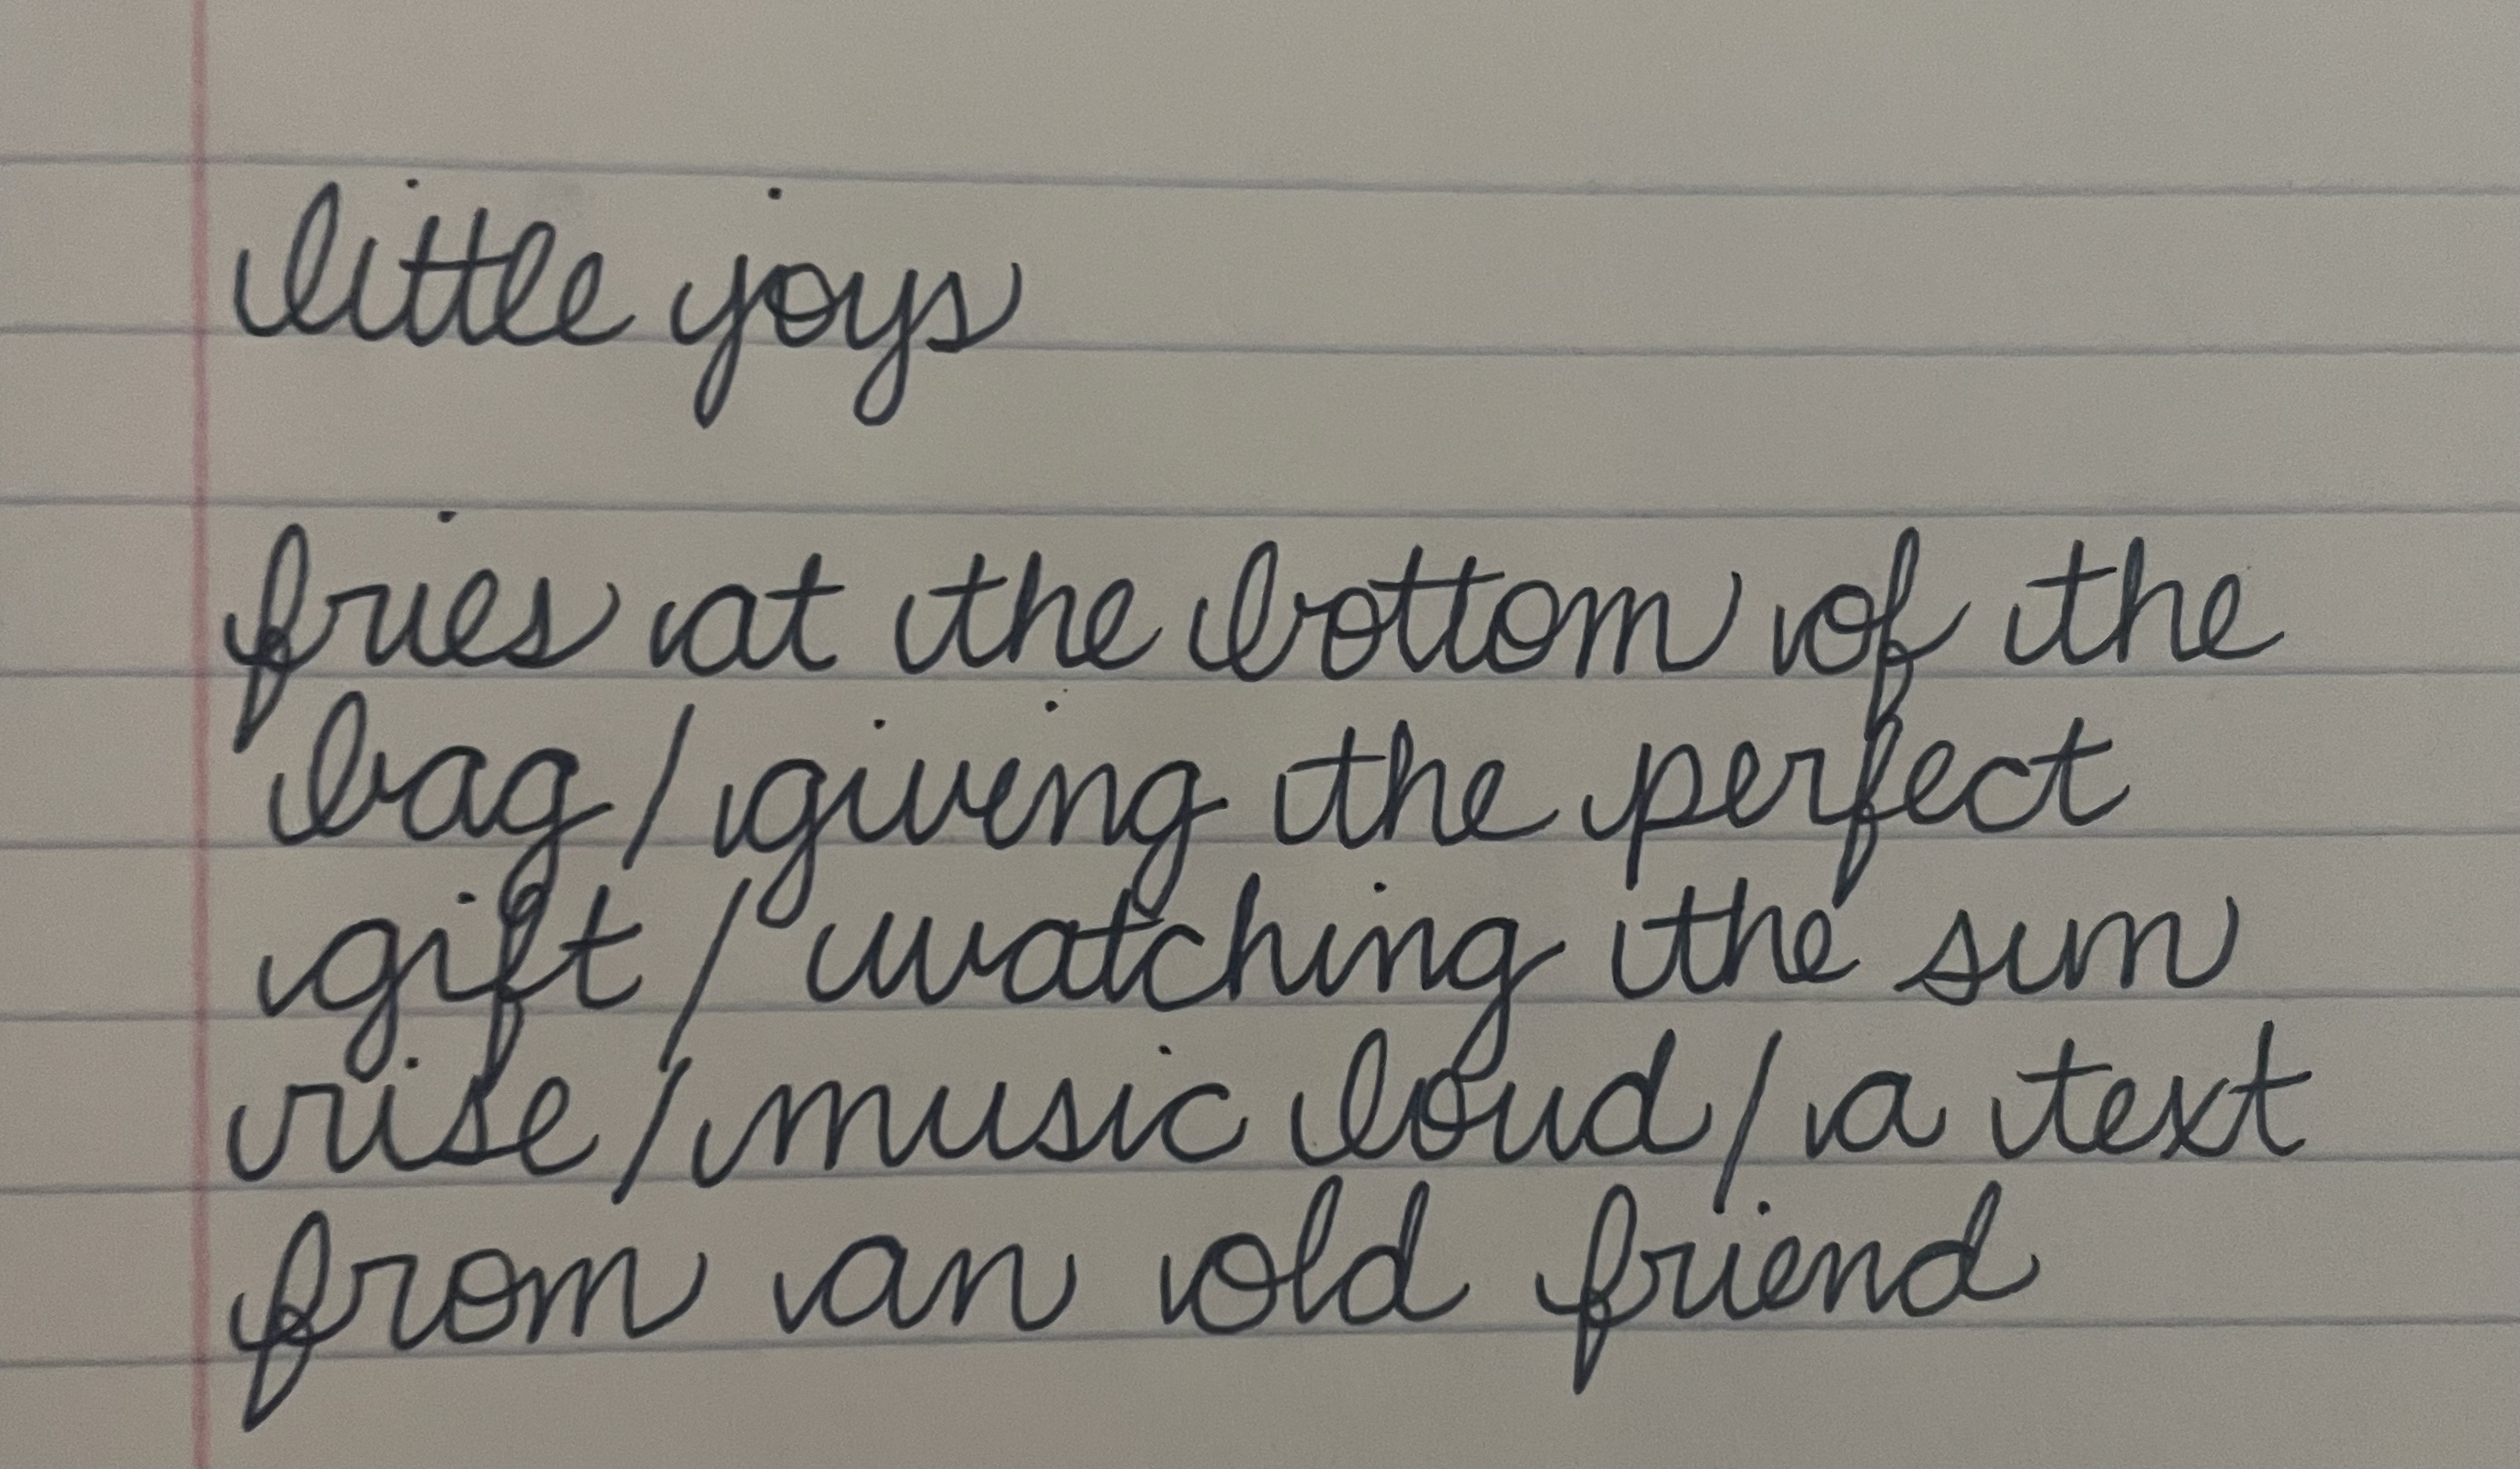 little joys
fries at the bottom of the
bag / giving the perfect
gift / watching the sun
rise / music loud / a text
from an old friend